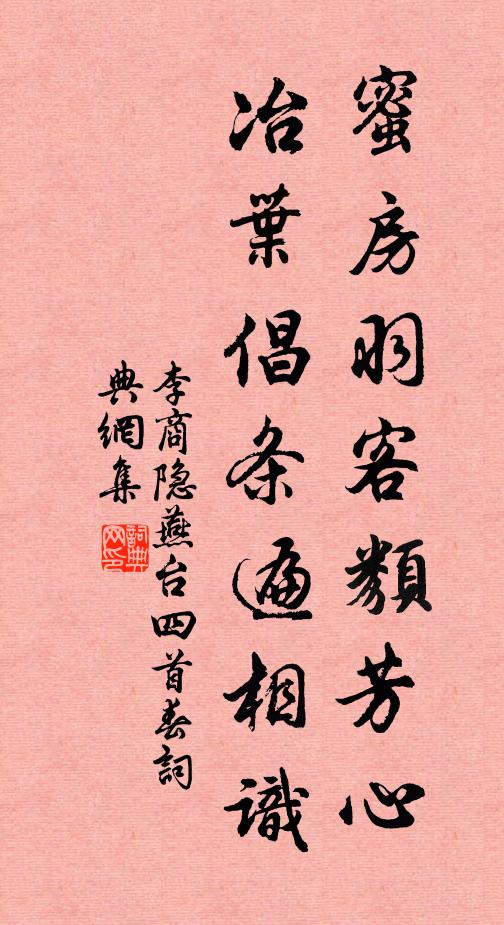 蜜房羽客類芳心
冶葉倡条遍相識
李商隐燕台四首春詞
典網集
詞典網印